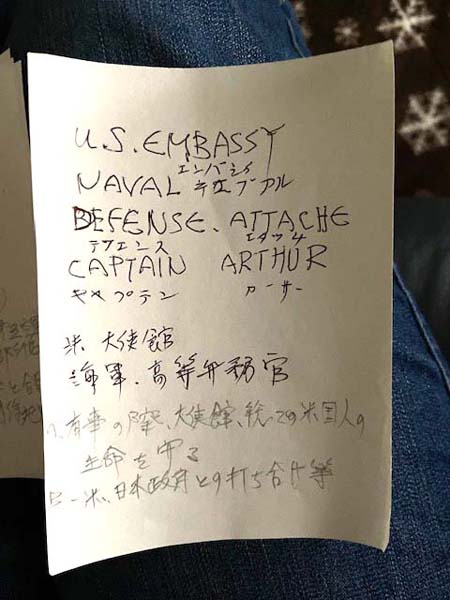 U.S. EMBASSY
エンバシイ
NAVAL
DEFENSE. ATTACHE
デフエンス エタッチ
CAPTAIN ARTHUR
キャプテン カーサー
米 大使館
海軍.高等弁務官
有事の際、大使館、統ての米国人の
生命を守る
B-米、日本政府との打ち合け等